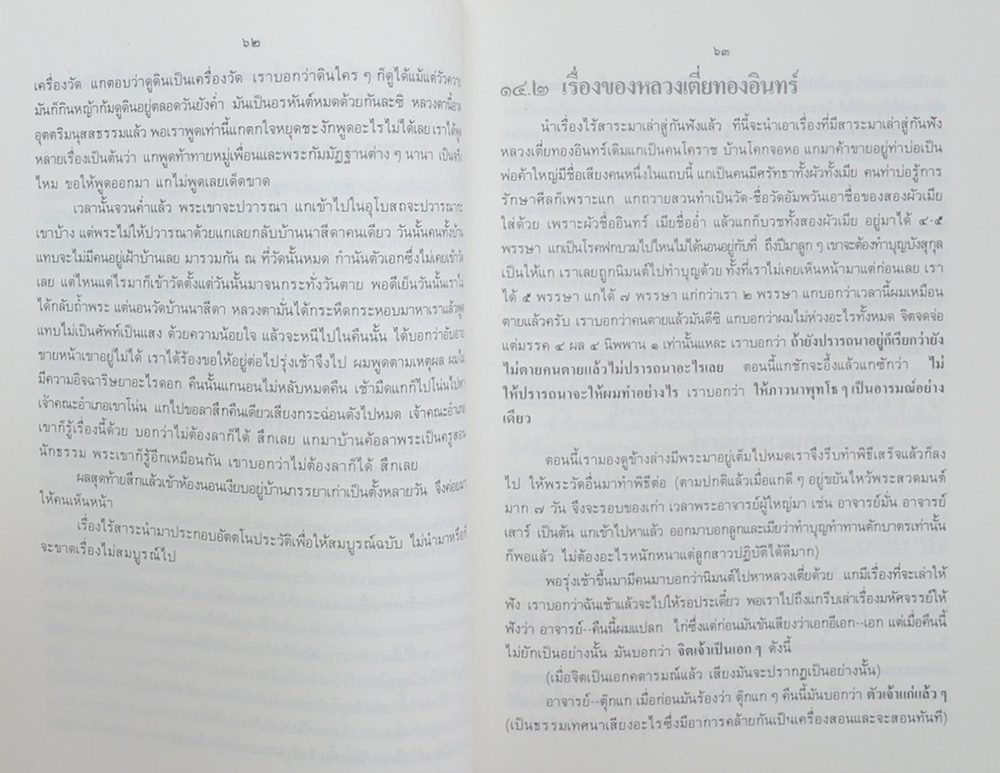 ๖๒
เครื่องวัด แกตอบว่าดูดินเป็นเครื่องวัด เราบอกว่าดินใคร ๆ ก็ดูได้แม้แต่วัวควาย
มันก็กินหญ้าก้มดูดินอยู่ตลอดวันยังค่ำ มันเป็นอรหันต์หมดด้วยกันละซิ หลวงตานี้อวด
อุตตริมนุสสธรรมแล้ว พอเราพูดเท่านี้แกตกใจหยุดชะงักพูดอะไรไม่ได้เลย เราได้พูด
หลายเรื่องเป็นต้นว่า แกพูดท้าทายหมู่เพื่อนและพระกัมมัฏฐานต่าง ๆ นานา เป็นจริง
ไหม ขอให้พูดออกมา แกไม่พูดเลยเด็ดขาด
เวลานั้นจวนค่ำแล้ว พระเขาจะปวารณา แกเข้าไปในอุโบสถจะปวารณากะ
เขาบ้าง แต่พระไม่ให้ปวารณาด้วยแกเลยกลับบ้านนาสีดาคนเดียว วันนั้นคนทั้งบ้าน
แทบจะไม่มีคนอยู่เฝ้าบ้านเลย มารวมกัน ณ ที่วัดนั้นหมด กำนันตัวเอกซึ่งไม่เคยเข้าวัด
เลย แต่ไหนแต่ไรมาก็เข้าวัดตั้งแต่วันนั้นมาจนกระทั่งวันตาย พอดีเย็นวันนั้นเราไม่
ได้กลับถ้ำพระ แต่นอนวัดบ้านนาสีดา หลวงตามั่นได้กระหืดกระหอบมาหาเราแล้วพูด
แทบไม่เป็นศัพท์เป็นแสง ด้วยความน้อยใจ แล้วจะหนีไปในคืนนั้น ได้บอกว่าอับอาย
ขายหน้าเขาอยู่ไม่ได้ เราได้ร้องขอให้อยู่ต่อไปรุ่งเช้าจึงไป ผมพูดตามเหตุผล ผมไม่
มีความอิจฉาริษยาอะไรดอก คืนนั้นแกนอนไม่หลับหมดคืน เช้ามืดแกก็ไปโน่นไปหา
เจ้าคณะอำเภอเขาโน่น แกไปขอลาสึกคืนเดียวเสียงกระฉ่อนดังไปหมด เจ้าคณะอำเภอ
เขาก็รู้เรื่องนี้ด้วย บอกว่าไม่ต้องลาก็ได้ สึกเลย แกมาบ้านค้อลาพระเป็นครูสอน
นักธรรม พระเขาก็รู้อีกเหมือนกัน เขาบอกว่าไม่ต้องลาก็ได้ สึกเลย
ผลสุดท้ายสึกแล้วเข้าห้องนอนเงียบอยู่บ้านภรรยาเก่าเป็นตั้งหลายวัน จึงค่อยมา
ให้คนเห็นหน้า
เรื่องไร้สาระนำมาประกอบอัตตโนประวัติเพื่อให้สมบูรณ์ฉบับ ไม่นำมาหรือก็
จะขาดเรื่องไม่สมบูรณ์ไป
๖๓
๑๔.๒ เรื่องของหลวงเตี่ยทองอินทร์
นำเรื่องไร้สาระมาเล่าสู่กันฟังแล้ว ทีนี้จะนำเอาเรื่องที่มีสาระมาเล่าสู่กันฟัง
หลวงเตี่ยทองอินทร์เดิมแกเป็นคนโคราช บ้านโคกจอหอ แกมาค้าขายอยู่ท่าบ่อเป็น
พ่อค้าใหญ่มีชื่อเสียงคนหนึ่งในแถบนี้ แกเป็นคนมีศรัทธาทั้งผัวทั้งเมีย คนท่าบ่อรู้การ
รักษาศีลก็เพราะแก แกถวายสวนทำเป็นวัด-ชื่อวัดอัมพวันเอาชื่อของสองผัวเมีย
ใส่ด้วย เพราะผัวชื่ออินทร์ เมียชื่ออ่ำ แล้วแกก็บวชทั้งสองผัวเมีย อยู่มาได้ ๔-๕
พรรษา แกเป็นโรคฟกบวมไปไหนไม่ได้นอนอยู่กับที่ ถึงปีมาลูก ๆ เขาจะต้องทำบุญบังสุกุล
เป็นให้แก เราเลยถูกนิมนต์ไปทำบุญด้วย ทั้งที่เราไม่เคยเห็นหน้ามาแต่ก่อนเลย เรา
ได้ ๕ พรรษา แกได้ ๗ พรรษา แก่กว่าเรา ๒ พรรษา แกบอกว่าเวลานี้ผมเหมือน
ตายแล้วครับ เราบอกว่าคนตายแล้วมันดีซิ แกบอกว่าผมไม่ห่วงอะไรทั้งหมด จิตจดจ่อ
แต่มรรค ๔ ผล ๔ นิพพาน ๑ เท่านั้นแหละ เราบอกว่า ถ้ายังปรารถนาอยู่ก็เรียกว่ายัง
ไม่ตายคนตายแล้วไม่ปรารถนาอะไรเลย ตอนนี้แกชักจะอึ้งแล้วแกซักว่า ไม่
ให้ปรารถนาจะให้ผมทำอย่างไร เราบอกว่า ให้ภาวนาพุทโธ ๆ เป็นอารมณ์อย่าง
เดียว
ตอนนี้เรามองดูข้างล่างมีพระมาอยู่เต็มไปหมดเราจึงรีบทำพิธีเสร็จแล้วก็ลง
ไป ให้พระวัดอื่นมาทำพิธีต่อ (ตามปกติแล้วเมื่อแกดี ๆ อยู่ขยันไหว้พระสวดมนต์
มาก ๗ วัน จึงจะรอบของเก่า เวลาพระอาจารย์ผู้ใหญ่มา เช่น อาจารย์มั่น อาจารย์
เสาร์ เป็นต้น แกเข้าไปหาแล้ว ออกมาบอกลูกและเมียว่าทำบุญทำทานตักบาตรเท่านั้น
ก็พอแล้ว ไม่ต้องอะไรหนักหนาแต่ลูกสาวปฏิบัติได้ดีมาก)
พอรุ่งเช้าขึ้นมามีคนมาบอกว่านิมนต์ไปหาหลวงเตี่ยด้วย แกมีเรื่องที่จะเล่าให้
ฟัง เราบอกว่าฉันเช้าแล้วจะไปให้รอประเดี๋ยว พอเราไปถึงแกรีบเล่าเรื่องมหัศจรรย์ให้
ฟังว่า อาจารย์--คืนนี้ผมแปลก ไก่ซึ่งแต่ก่อนมันขันเสียงว่าเอกอีเอก--เอก แต่เมื่อคืนนี้
ไม่ยักเป็นอย่างนั้น มันบอกว่า จิตเจ้าเป็นเอก ๆ ดังนี้
(เมื่อจิตเป็นเอกคตารมณ์แล้ว เสียงมันจะปรากฏเป็นอย่างนั้น)
อาจารย์--ตุ๊กแก เมื่อก่อนมันร้องว่า ตุ๊กแก ๆ คืนนี้มันบอกว่า ตัวเจ้าแก่แล้ว ๆ
(เป็นธรรมเทศนาเสียงอะไรซึ่งมีอาการคล้ายกันเป็นเครื่องสอนและจะสอนทันที)